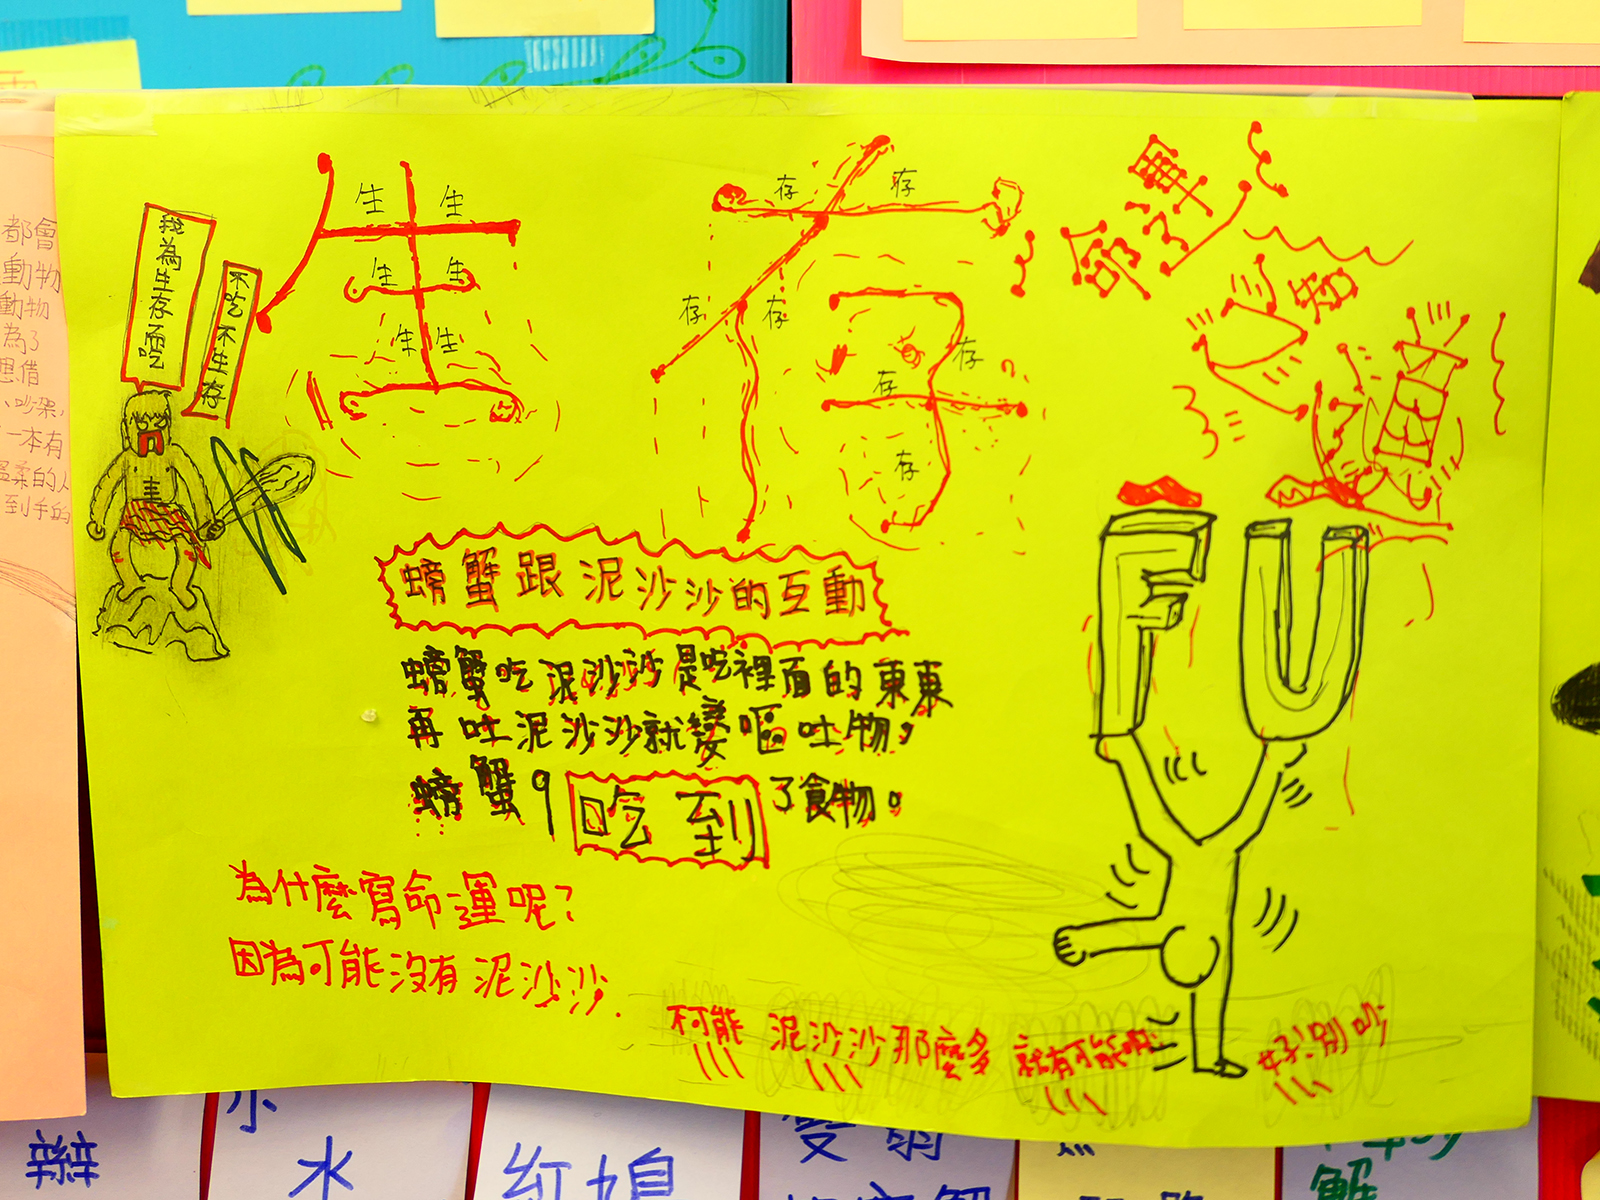 生存
生 生
生 生
生 生
存 存
存 存
存
存
存
我為生存而吃
不吃不生存
命運
螃蟹跟泥沙沙的互動
螃蟹吃泥沙沙是吃裡面的東東
再吐泥沙沙就變嘔吐物。
螃蟹吃到了食物。
為什麼寫命運呢?
因為可能沒有泥沙沙.
不可能 泥沙沙那麼多 就有可能啊 好!別吵
FU
都會
動物
動物
為了
想借
、吵架,
一本有
溫柔的人
到手的
辮
小
水
紅
蟹